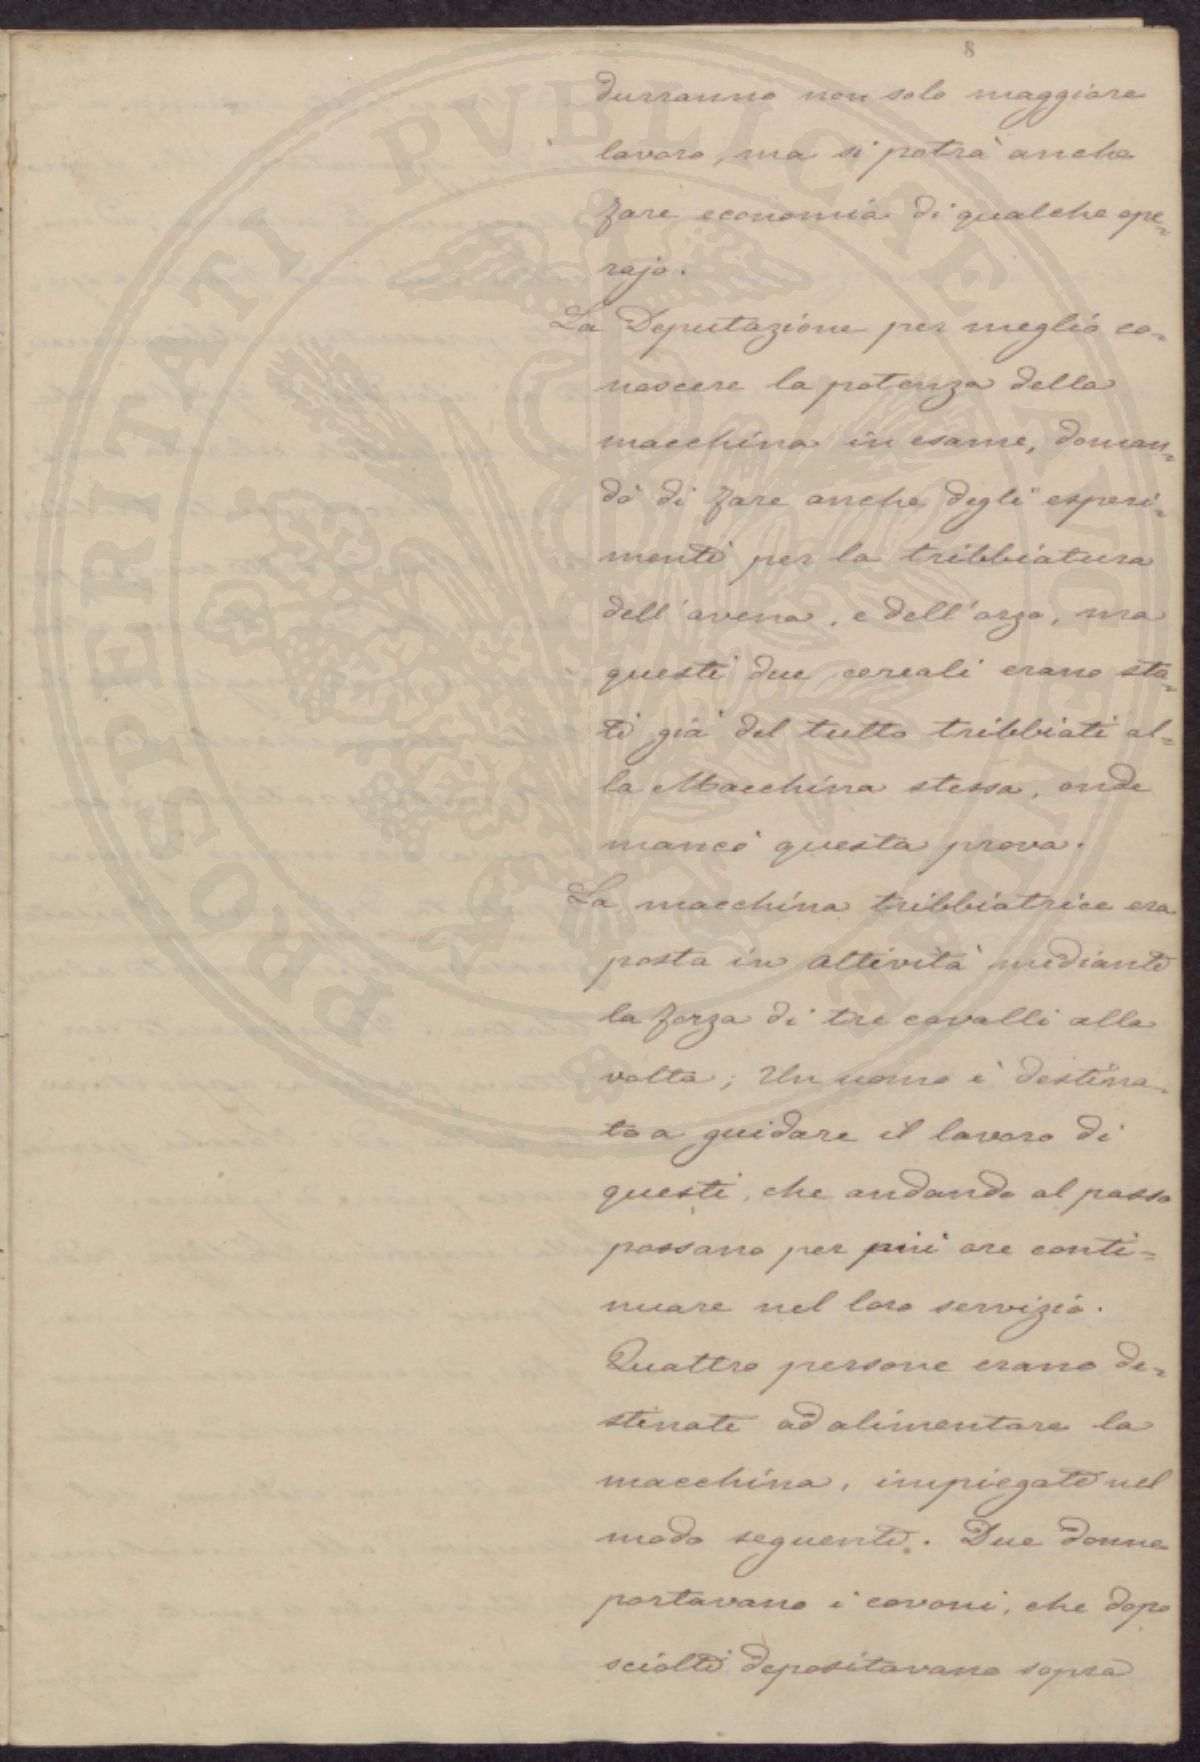 8
durranno non solo maggiore
lavoro, ma si potrà anche
fare economia di qualche ope=
rajo.
La Deputazione per meglio co=
noscere la potenza della
macchina in esame, doman=
dò di fare anche degli esperi=
menti per la tribbiatura
dell'avena, e dell'orzo, ma
questi due cereali erano sta=
ti già del tutto tribbiati al=
la Macchina stessa, onde
mancò questa prova.
La macchina tribbiatrice era
posta in attività mediante
la forza di tre cavalli alla
volta; Un uomo è destina=
to a guidare il lavoro di
questi, che andando al passo
possano per più ore conti=
nuare nel loro servizio.
Quattro persone erano de=
stinate ad alimentare la
macchina, impiegate nel
modo seguente. Due donne
portavano i covoni, che dopo
sciolti depositavano sopra
PROSPERITATI PVBLICAE AVGENDAE